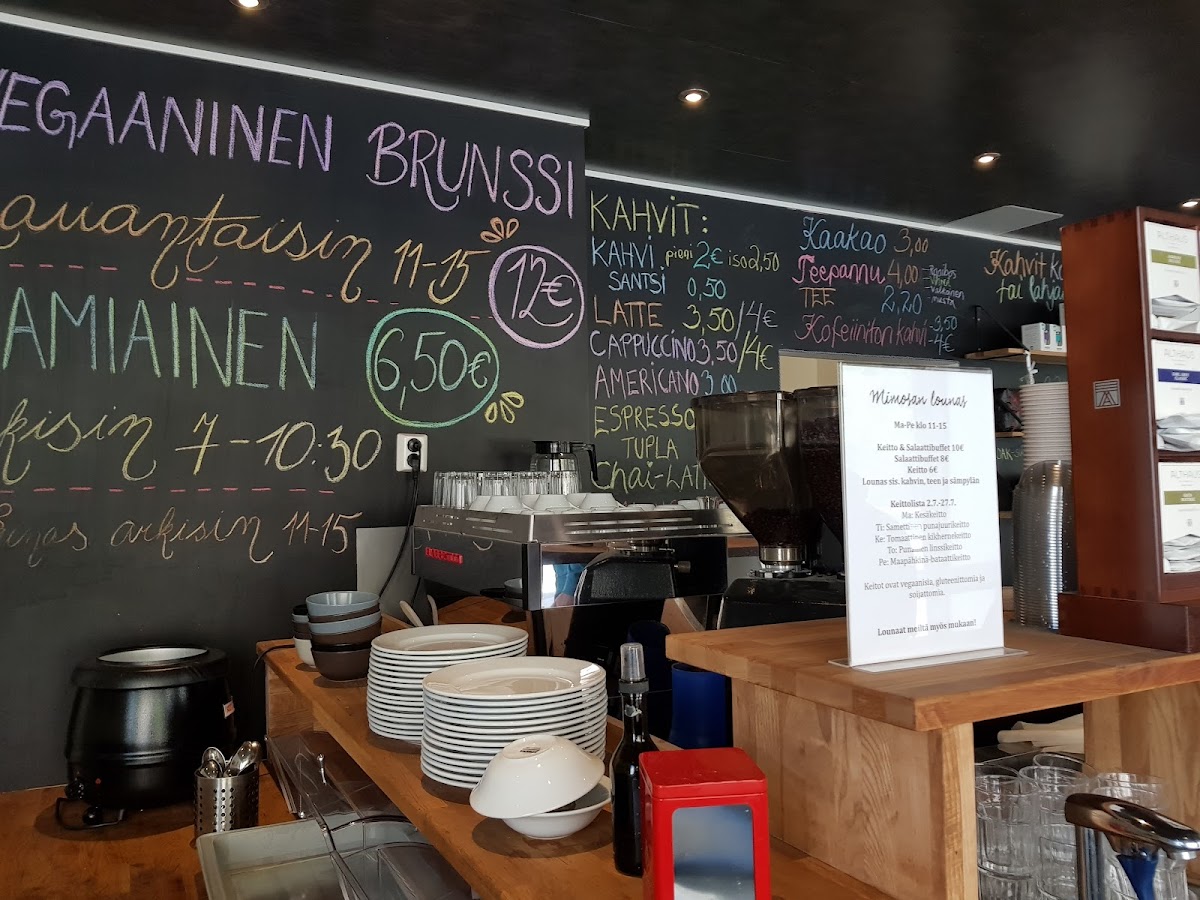 VEGAANINEN BRUNSSI
Lauantaisin 11-15
12€
AAMIAINEN 6,50€
Arkisin 7-10:30
Lounas arkisin 11-15
KAHVIT:
KAHVI pieni 2€ iso 2,50
SANTSI 0,50
LATTE 3,50/4€
CAPPUCCINO 3,50/4€
AMERICANO 3,00
ESPRESSO
TUPLA
Chai-LATTE
Kaakao 3,00
Teepannu 4,00
TEE 2,20
-vihreä
-valkoinen
-musta
Kofeiiniton kahvi -3,50
-4€
Kahvit
tai lahja
Mimosan lounas
Ma-Pe klo 11-15
Keitto & Salaattibuffet 10€
Salaattibuffet 8€
Keitto 6€
Lounas sis. kahvin, teen ja sämpylän
Keittolista 2.7.-27.7.
Ma: Kesäkeitto
Ti: Samettinen punajuurikeitto
Ke: Tomaattinen kikhernekeitto
To: Punainen linssikeitto
Pe: Maapähkinä-bataattikeitto
Keitot ovat vegaanisia, gluteenittomia ja
soijattomia.
Lounaat meiltä myös mukaan!
ALTHAUS
ALTHAUS
ALTHAUS